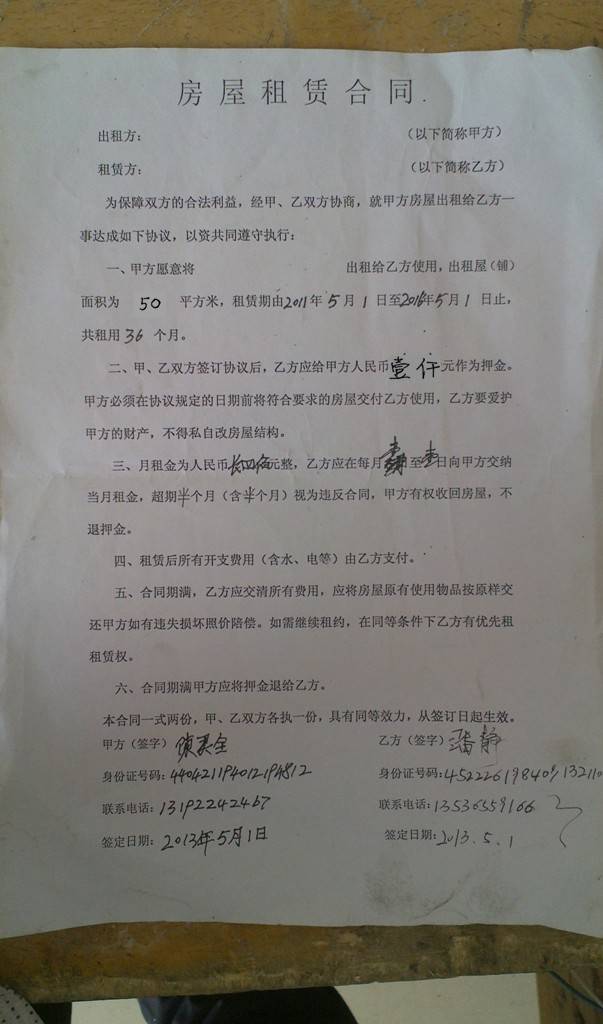 房屋租赁合同.
出租方： （以下简称甲方）
租赁方： （以下简称乙方）
为保障双方的合法利益，经甲、乙双方协商，就甲方房屋出租给乙方一
事达成如下协议，以资共同遵守执行：
一、甲方愿意将 出租给乙方使用，出租屋（铺）
面积为 50 平方米，租赁期由2011年5月1日至2016年5月1日止，
共租用36个月。
二、甲、乙双方签订协议后，乙方应给甲方人民币壹仟元作为押金。
甲方必须在协议规定的日期前将符合要求的房屋交付乙方使用，乙方要爱护
甲方的财产，不得私自改房屋结构。
三、月租金为人民币元整，乙方应在每月至日向甲方交纳
当月租金，超期半个月（含半个月）视为违反合同，甲方有权收回房屋，不
退押金。
四、租赁后所有开支费用（含水、电等）由乙方支付。
五、合同期满，乙方应交清所有费用，应将房屋原有使用物品按原样交
还甲方如有违失损坏照价陪偿。如需继续租约，在同等条件下乙方有优先租
租赁权。
六、合同期满甲方应将押金退给乙方。
本合同一式两份，甲、乙双方各执一份，具有同等效力，从签订日起生效。
甲方（签字） 乙方（签字）潘静
身份证号码： 身份证号码：
联系电话：13192242467 联系电话：13536559166
签定日期：2013年5月1日 签定日期：2013.5.1